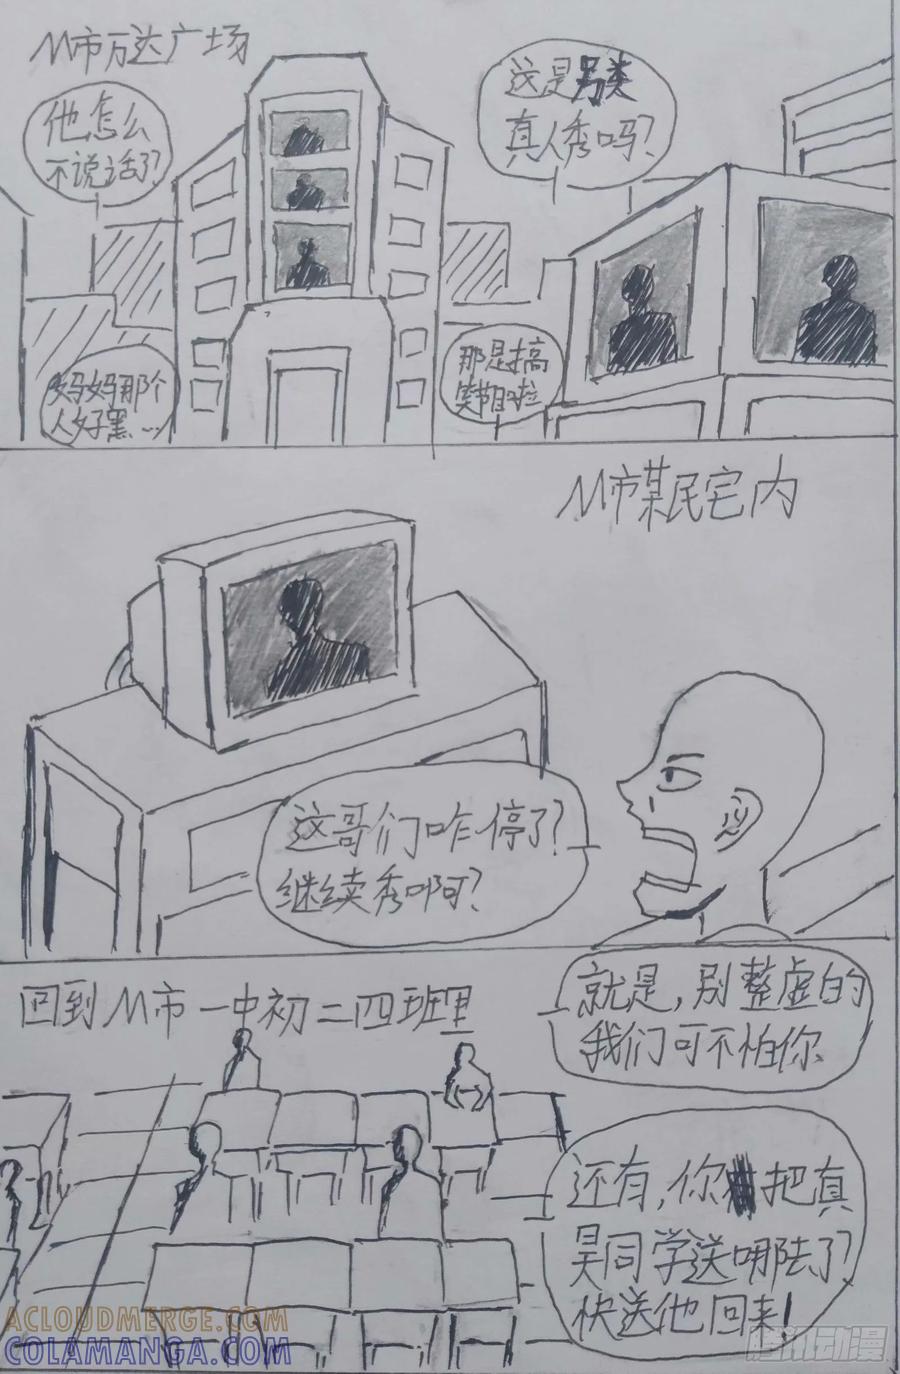 M市万达广场
他怎么
不说话了?
这是另类
真人秀吗?
妈妈那个
人好黑...
那是搞
笑节目啦
M市某民宅内
这哥们咋停了?
继续秀啊?
回到M市一中初二四班里
就是,别整虚的
我们可不怕你
还有,你把真
昊同学送哪去了?
快送他回来!
ACLOUDMERGE.COM
COLAMANGA.COM
腾讯动漫